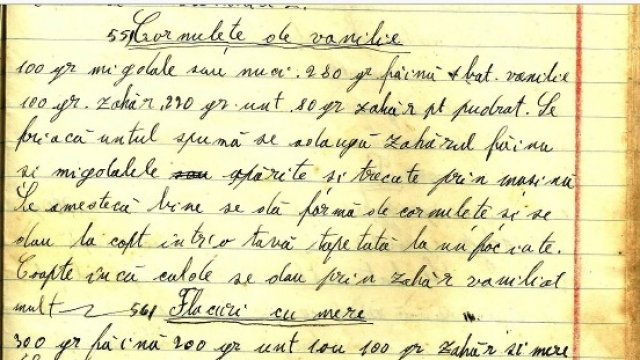 55) Cornulețe de vanilie
100 gr migdale sau nuci. 280 gr făină 1 bat. vanilie
100 gr. zahăr, 220 gr unt. 80 gr zahăr pt pudrat. Se
freacă untul spumă se adaugă zahărul făina
si migdalele sau opărite și trecute prin mașină
Se amestecă bine se dă formă de cornulete și se
dau la copt într'o tavă tapetată la un foc iute.
Coapte încă calde se dau prin zahăr vanilat
mult 56) Flacuri cu mere
300 gr făină 200 gr unt 1ou 100 gr zahăr si mere